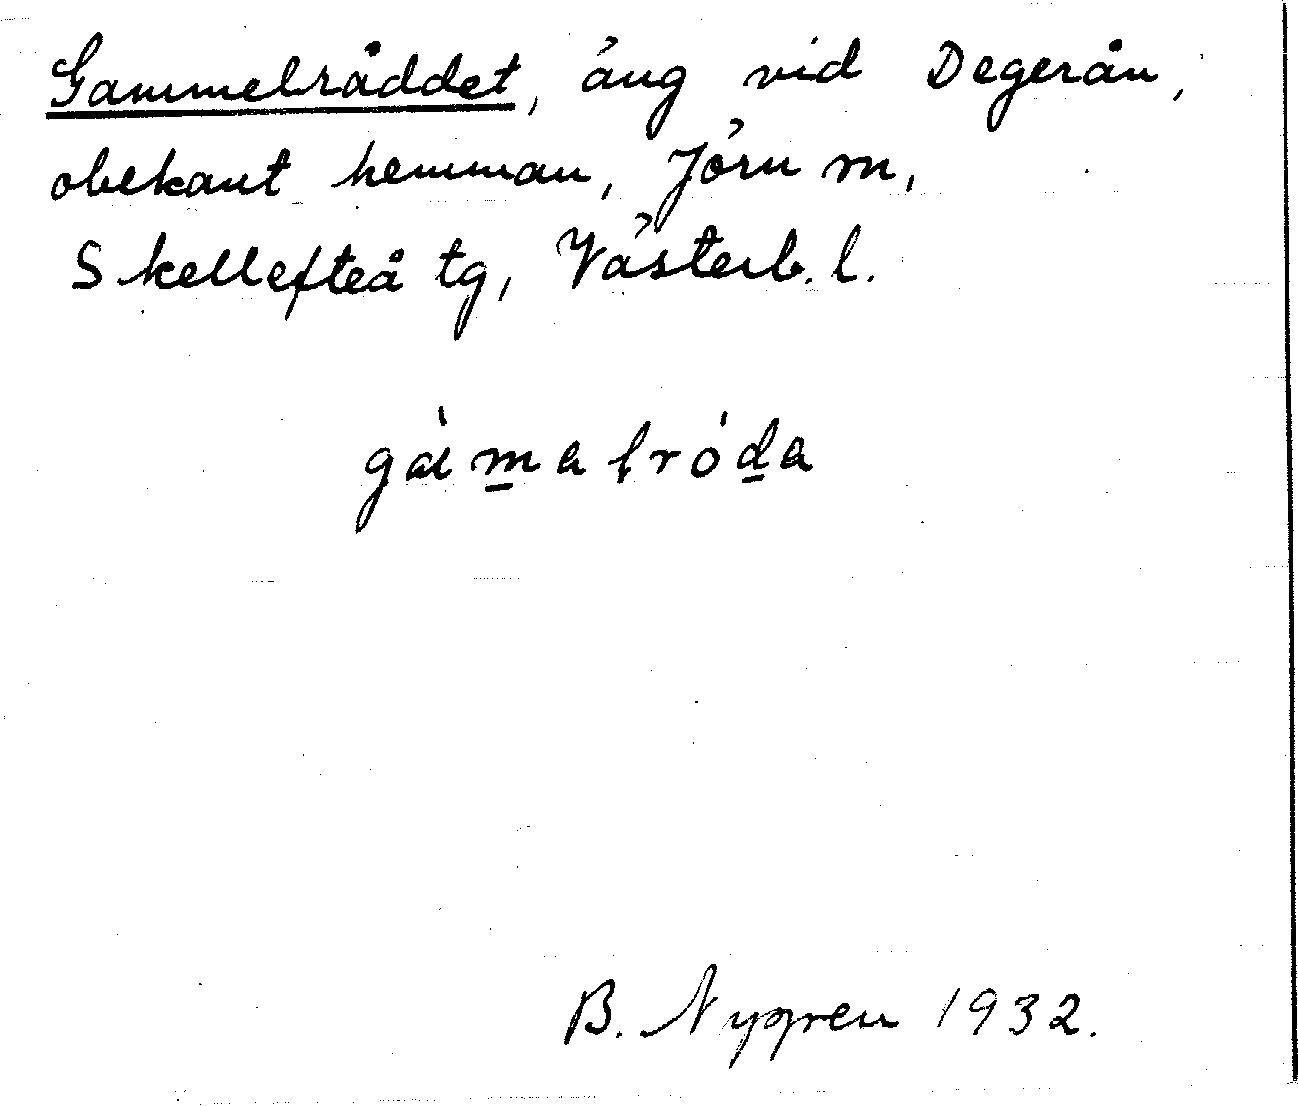 Gammelråddet, äng vid Degerån,
obekant hemman, Jörn sn,
Skellefteå tg, Västerb. l.
gàmaɫróda
B. Nygren 1932.